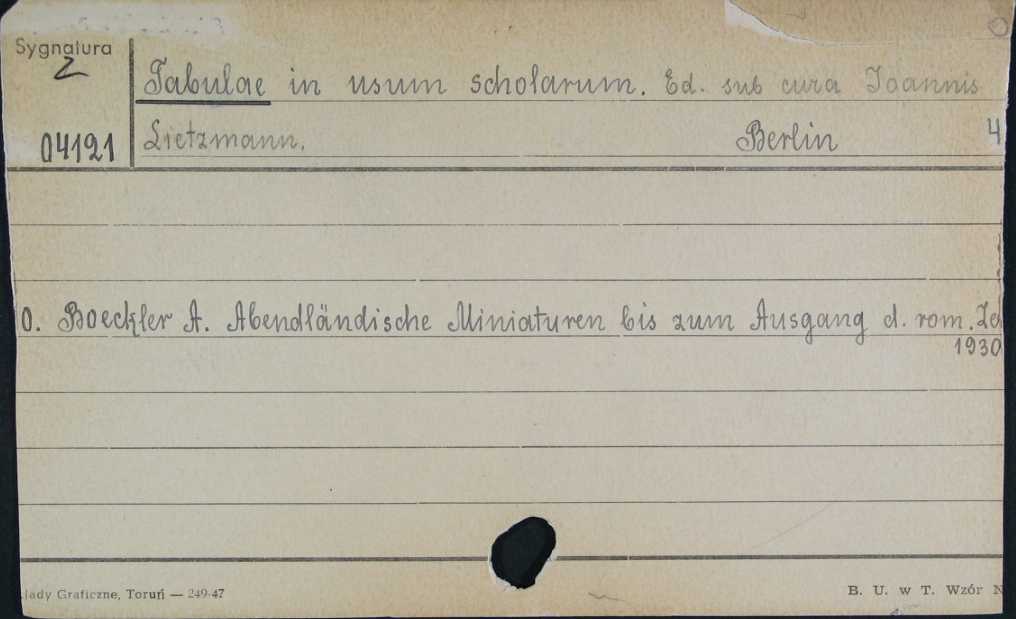 Sygnatura
Z
Tabulae in usum scholarum. Ed. sub cura Ioannis
04121
Lietzmann. Berlin 4
0. Boeckler A. Abendländische Miniaturen bis zum Ausgang d. rom. Ze
1930
łady Graficzne, Toruń — 249-47
B. U. w T. Wzór N